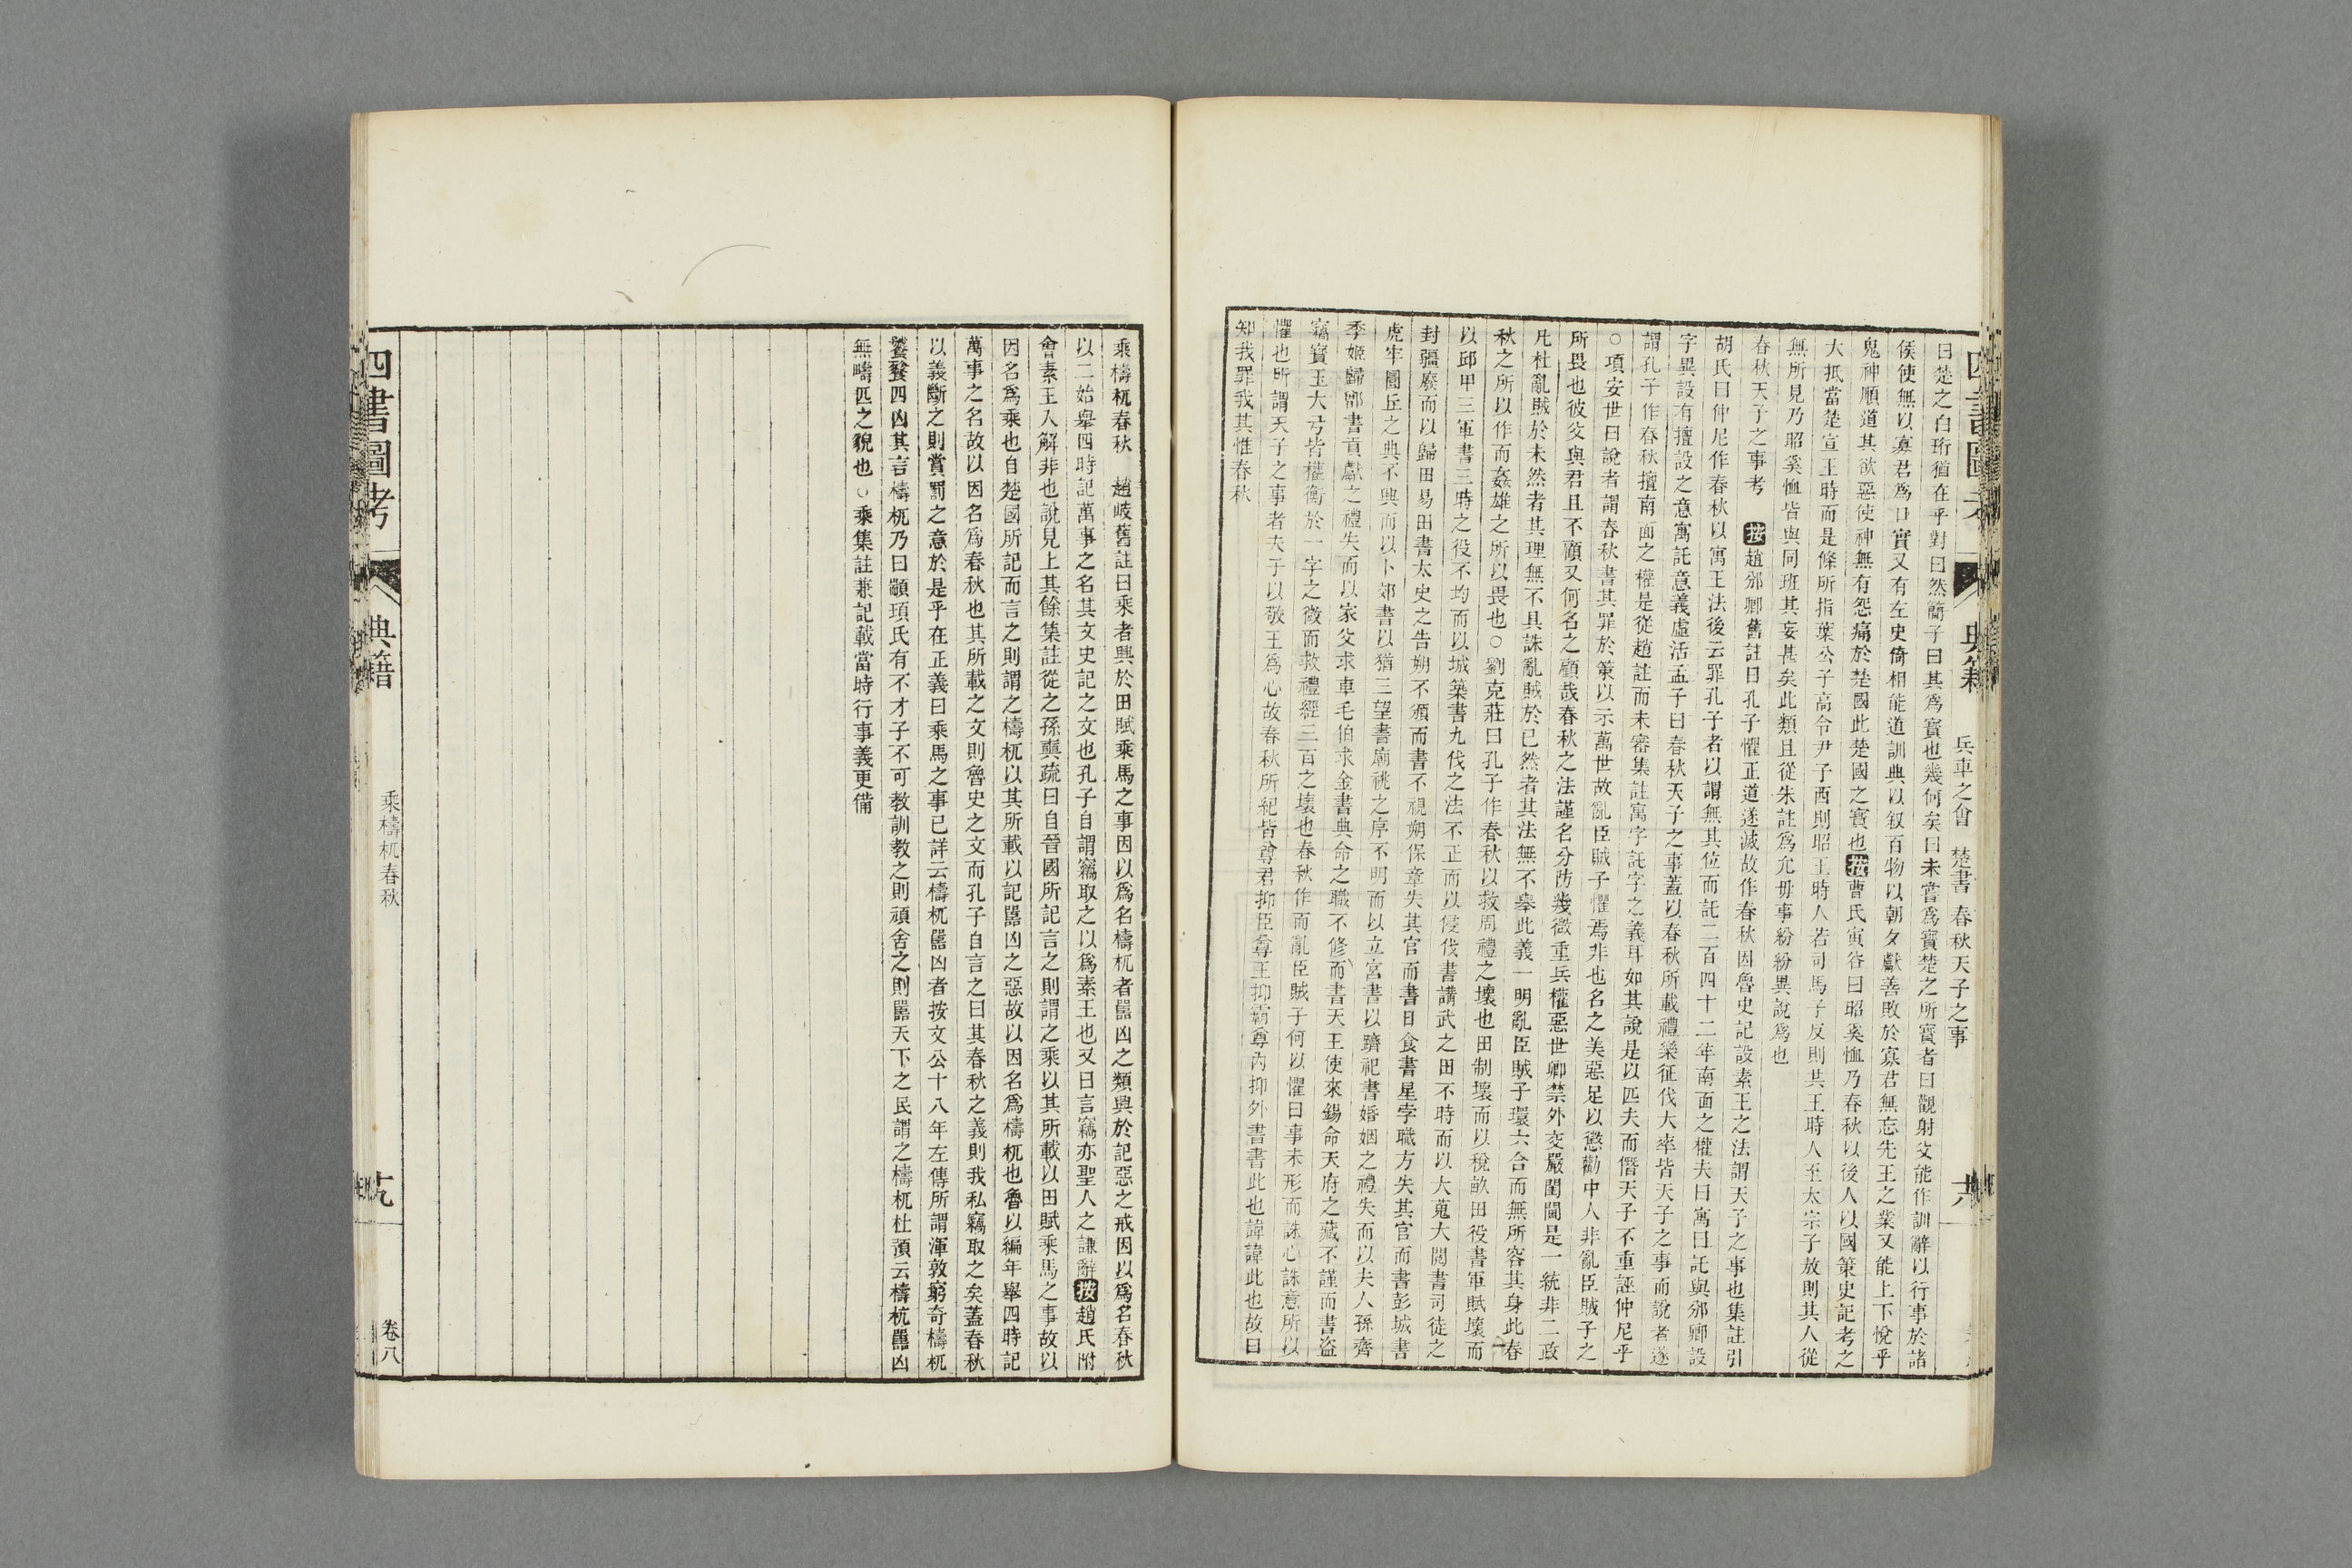 四書圖考
典籍
兵車之會　楚書　春秋天子之事
六
曰楚之白珩猶在乎對曰然簡子曰其爲寶也幾何矣曰未嘗爲寶楚之所寶者曰觀射父能作訓辭以行事於諸
侯使無以寡君爲口實又有左史倚相能道訓典以叙百物以朝夕獻善敗於寡君無忘先王之業又能上下悅乎
鬼神順道其欲惡使神無有怨痛於楚國此楚國之寶也按曹氏寅谷曰昭奚恤乃春秋以後人以國策史記考之
大抵當楚宣王時而是條所指葉公子高令尹子西則昭王時人若司馬子反則共王時人至太宗子敖則其人從
無所見乃昭奚恤皆與同班其妄甚矣此類且從朱註爲允毋事紛紛異說爲也
春秋天子之事考　按趙邠卿舊註曰孔子懼正道遂滅故作春秋因魯史記設素王之法謂天子之事也集註引
胡氏曰仲尼作春秋以寓王法後云罪孔子者以謂無其位而託二百四十二年南面之權夫曰寓曰託與邠卿設
字異設有擅設之意寓託意義虛活孟子曰春秋天子之事蓋以春秋所載禮樂征伐大率皆天子之事而說者遂
謂孔子作春秋擅南面之權是從趙註而未審集註寓字託字之義耳如其說是以匹夫而僭天子不重誣仲尼乎
○項安世曰說者謂春秋書其罪於策以示萬世故亂臣賊子懼焉非也名之美惡足以懲勸中人非亂臣賊子之
所畏也彼父與君且不顧又何名之顧哉春秋之法謹名分防幾微重兵權惡世卿禁外交嚴閨閫是一統非二政
凡杜亂賊於未然者其理無不具誅亂賊於已然者其法無不舉此義一明亂臣賊子環六合而無所容其身此春
秋之所以作而姦雄之所以畏也○劉克莊曰孔子作春秋以救周禮之壞也田制壞而以稅畝田役書軍賦壞而
以邱甲三軍書三時之役不均而以城築書九伐之法不正而以侵伐書講武之田不時而以大蒐大閱書司徒之
封疆廢而以歸田易田書太史之告朔不頒而書不視朔保章失其官而書日食書星孛職方失其官而書彭城書
虎牢圜丘之典不興而以卜郊書以猶三望書廟祧之序不明而以立宮書以躋祀書婚姻之禮失而以夫人孫齊
季姬歸鄫書貢獻之禮失而以家父求車毛伯求金書典命之職不修而書天王使來錫命天府之藏不謹而書盜
竊寶玉大弓皆權衡於一字之微而救禮經三百之壞也春秋作而亂臣賊子何以懼曰事未形而誅心誅意所以
懼也所謂天子之事者夫子以敬王爲心故春秋所紀皆尊君抑臣尊王抑霸尊內抑外書書此也諱諱此也故曰
知我罪我其惟春秋
乘檮杌春秋　趙岐舊註曰乘者興於田賦乘馬之事因以爲名檮杌者嚚凶之類興於記惡之戒因以爲名春秋
以二始舉四時記萬事之名其文史記之文也孔子自謂竊取之以爲素王也又曰言竊亦聖人之謙辭按趙氏附
會素王入解非也說見上其餘集註從之孫奭疏曰自晉國所記言之則謂之乘以其所載以田賦乘馬之事故以
因名爲乘也自楚國所記而言之則謂之檮杌以其所載以記嚚凶之惡故以因名爲檮杌也魯以編年舉四時記
萬事之名故以因名爲春秋也其所載之文則魯史之文而孔子自言之曰其春秋之義則我私竊取之矣蓋春秋
以義斷之則賞罰之意於是乎在正義曰乘馬之事已詳云檮杌嚚凶者按文公十八年左傳所謂渾敦窮奇檮杌
饕餮四凶其言檮杌乃曰顓頊氏有不才子不可教訓教之則頑舍之則嚚天下之民謂之檮杌杜預云檮杌嚚凶
無疇匹之貌也○乘集註兼記載當時行事義更備
四書圖考
典籍
乘檮杌春秋
卷八